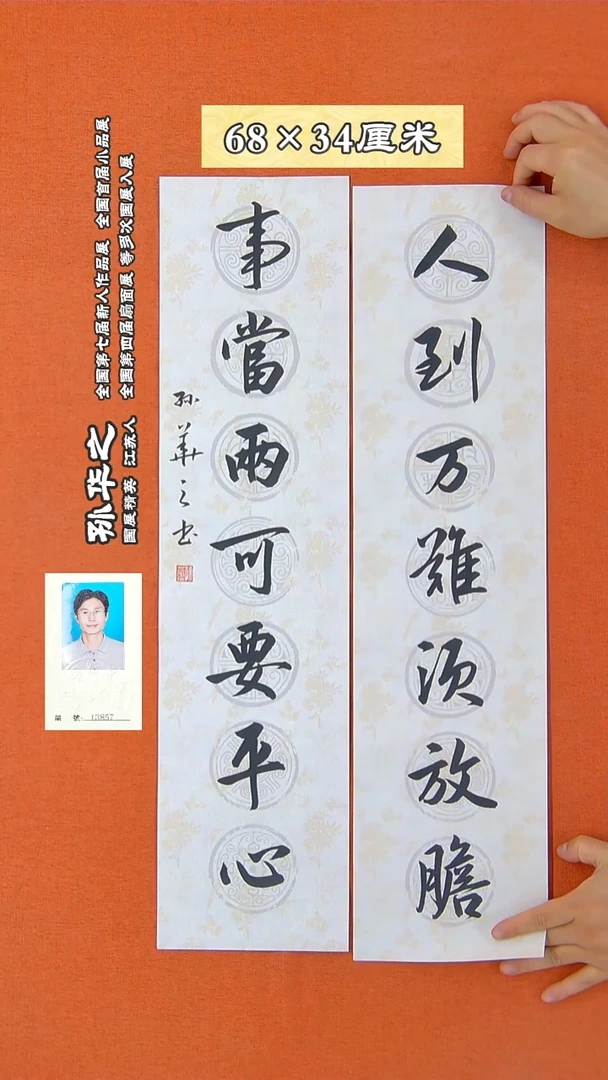 68×34厘米
人到万難须放膽
事當兩可要平心
孙華之书
孙华之
国展精英 江苏人
全国第七届新人作品展 全国首届小品展
全国第四届扇面展 等多次国展入展
號: 13857